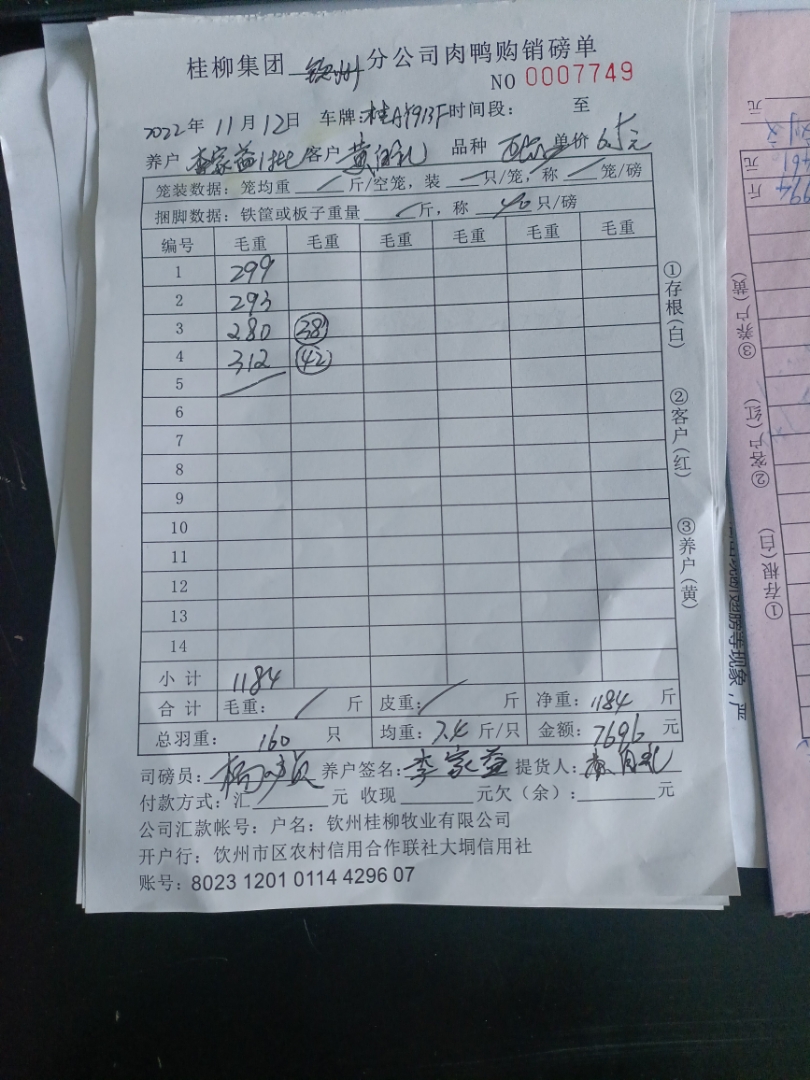 桂柳集团 钦州 分公司肉鸭购销磅单
NO 0007749
2022年 11月12日 车牌: 桂A 913F 时间段: 至
养户 李家益 客户 黄 礼 品种 单价 6.5元
笼装数据: 笼均重 / 斤/空笼, 装 只/笼, 称 / 笼/磅
捆脚数据: 铁筐或板子重量 / 斤, 称 40 只/磅
编号 毛重 毛重 毛重 毛重 毛重 毛重
1 299
2 293
3 280 38
4 312 42
5
6
7
8
9
10
11
12
13
14
小计 1184
合计 毛重: / 斤 皮重: / 斤 净重: 1184 斤
总羽重: 160 只 均重: 7.4 斤/只 金额: 7696 元
司磅员: 杨 养户签名: 李家益 提货人: 黄 礼
付款方式: 汇 元 收现 元欠(余): 元
公司汇款帐号: 户名: 钦州桂柳牧业有限公司
开户行: 饮州市区农村信用合作联社大垌信用社
账号: 8023 1201 0114 4296 07
①存根(白) ②客户(红) ③养户(黄)
①存根(白) ②客户(红) ③养户(黄)
元
元
斤
等现象,严